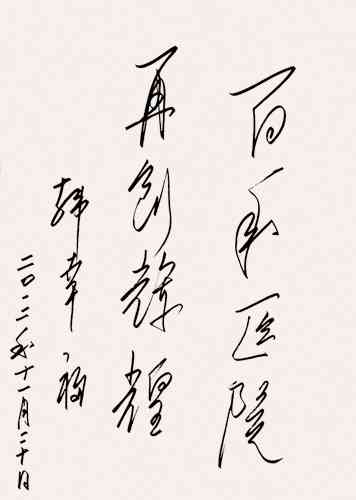 百年医院
再创辉煌
韩幸福
二〇一二年十一月二十日